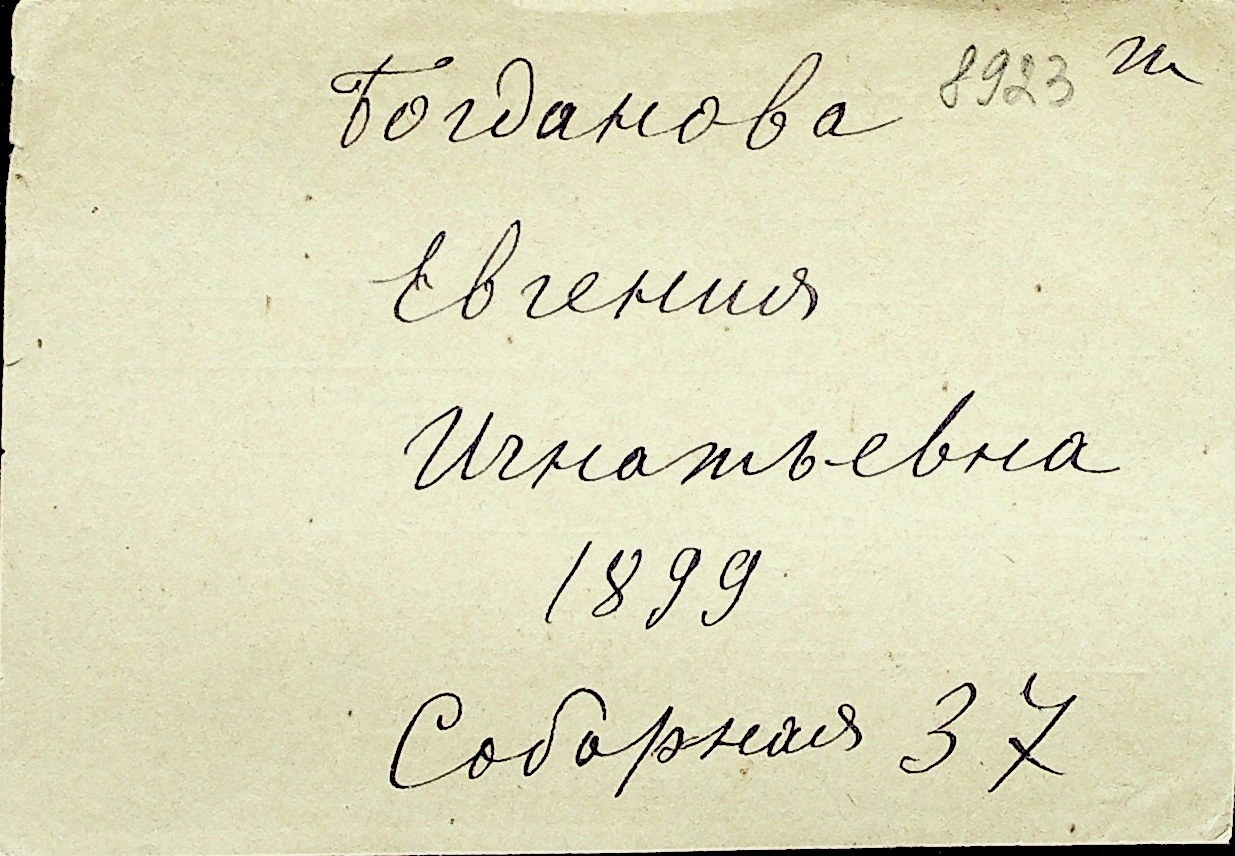 Богданова 8923
Евгения
Игнатьевна
1899
Соборная 37